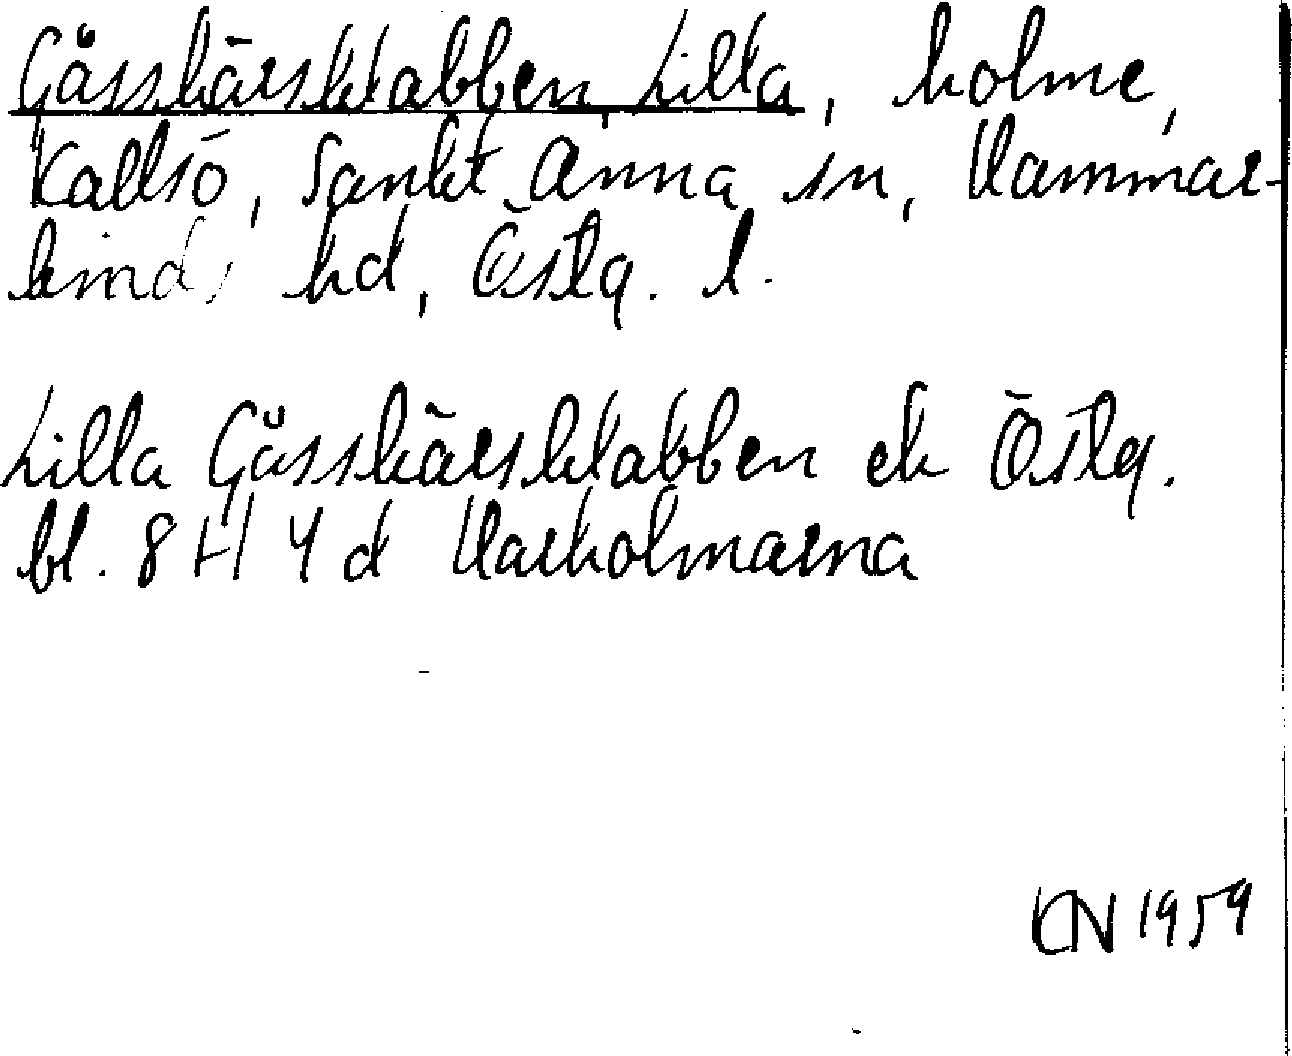 Gåsskärsklabben, Lilla, holme,
Kallsö, Sankt Anna sn, Hammar-
kinds hd, Östg. l.
Lilla Gåsskärsklabben ek Östg.
bl. 8 H 4 d Harholmarna
KN 1959